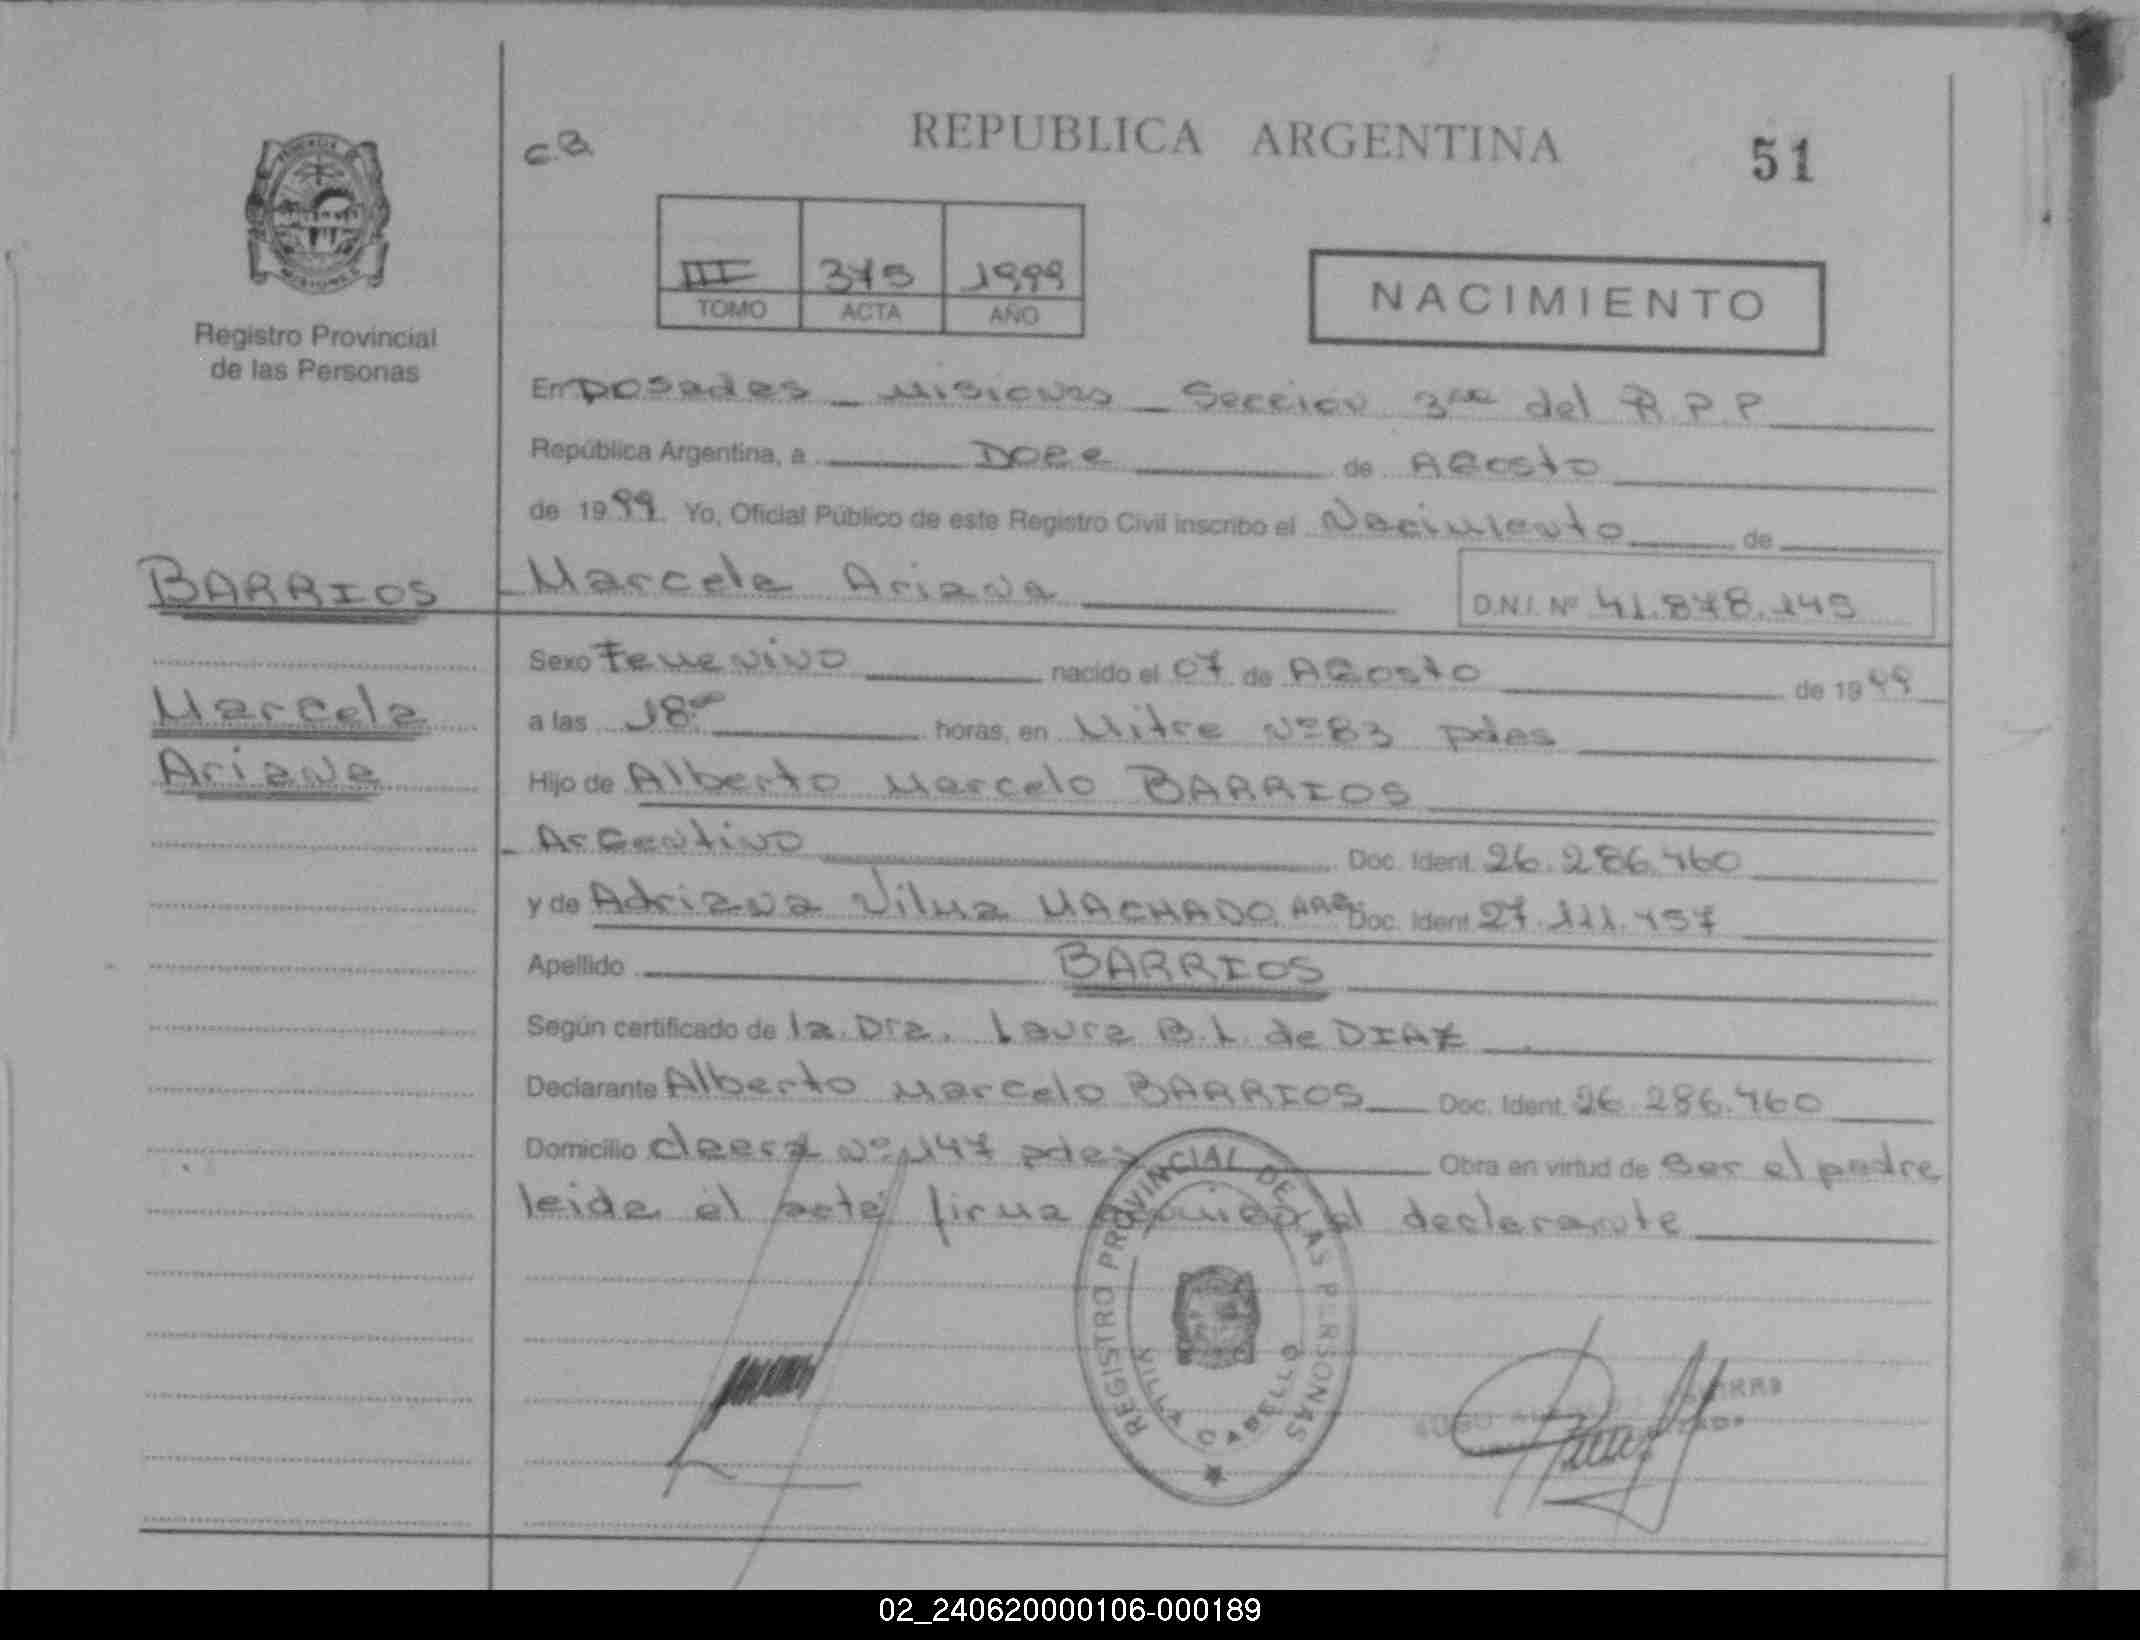 REPUBLICA ARGENTINA
51
C.B.
III 375 1999
TOMO ACTA AÑO
NACIMIENTO
Registro Provincial
de las Personas
En Posadas - Misiones - Sección 3ra del R.P.P
República Argentina, a Doce de Agosto
de 1999. Yo, Oficial Público de este Registro Civil inscribo el Nacimiento de
BARRIOS
Marcela Ariana
D.N.I. Nº 41.878.145
Sexo Femenino nacido el 07 de Agosto de 1999
Marcela
Ariana
a las 18:00 horas, en Mitre Nº 83 pdas
Hijo de Alberto Marcelo BARRIOS
Argentino Doc. Ident. 26.286.460
y de Adriana Vilma MACHADO ARG. Doc. Ident. 27.111.457
Apellido BARRIOS
Según certificado de la Dra. Laura B.L. de DIAZ
Declarante Alberto Marcelo BARRIOS Doc. Ident. 26.286.460
Domicilio Nº 147 pdas Obra en virtud de ser el padre
leida el acta firma conmigo el declarante
REGISTRO PROVINCIAL DE LAS PERSONAS
VILLA CABELLO
02_240620000106-000189